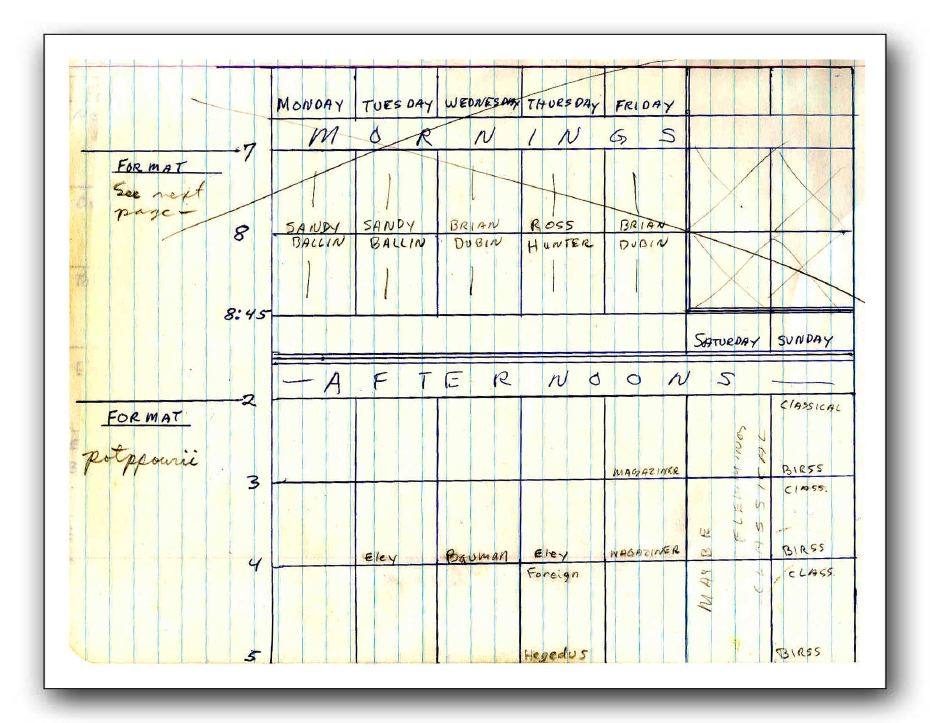 MONDAY TUESDAY WEDNESDAY THURSDAY FRIDAY
MORNINGS
7
FORMAT
See next
page-
SANDY SANDY BRIAN ROSS BRIAN
8
BALLIN BALLIN DUBIN HUNTER DUBIN
8:45
SATURDAY SUNDAY
— AFTERNOONS —
2
CLASSICAL
FORMAT
potppourii
MAGAZINER BIRSS
3
CLASS.
Eley Bauman Eley MAGAZINER BIRSS
4
Foreign CLASS.
MAYBE
FLEMMINGS
CLASSICAL
5
Hegedus BIRSS